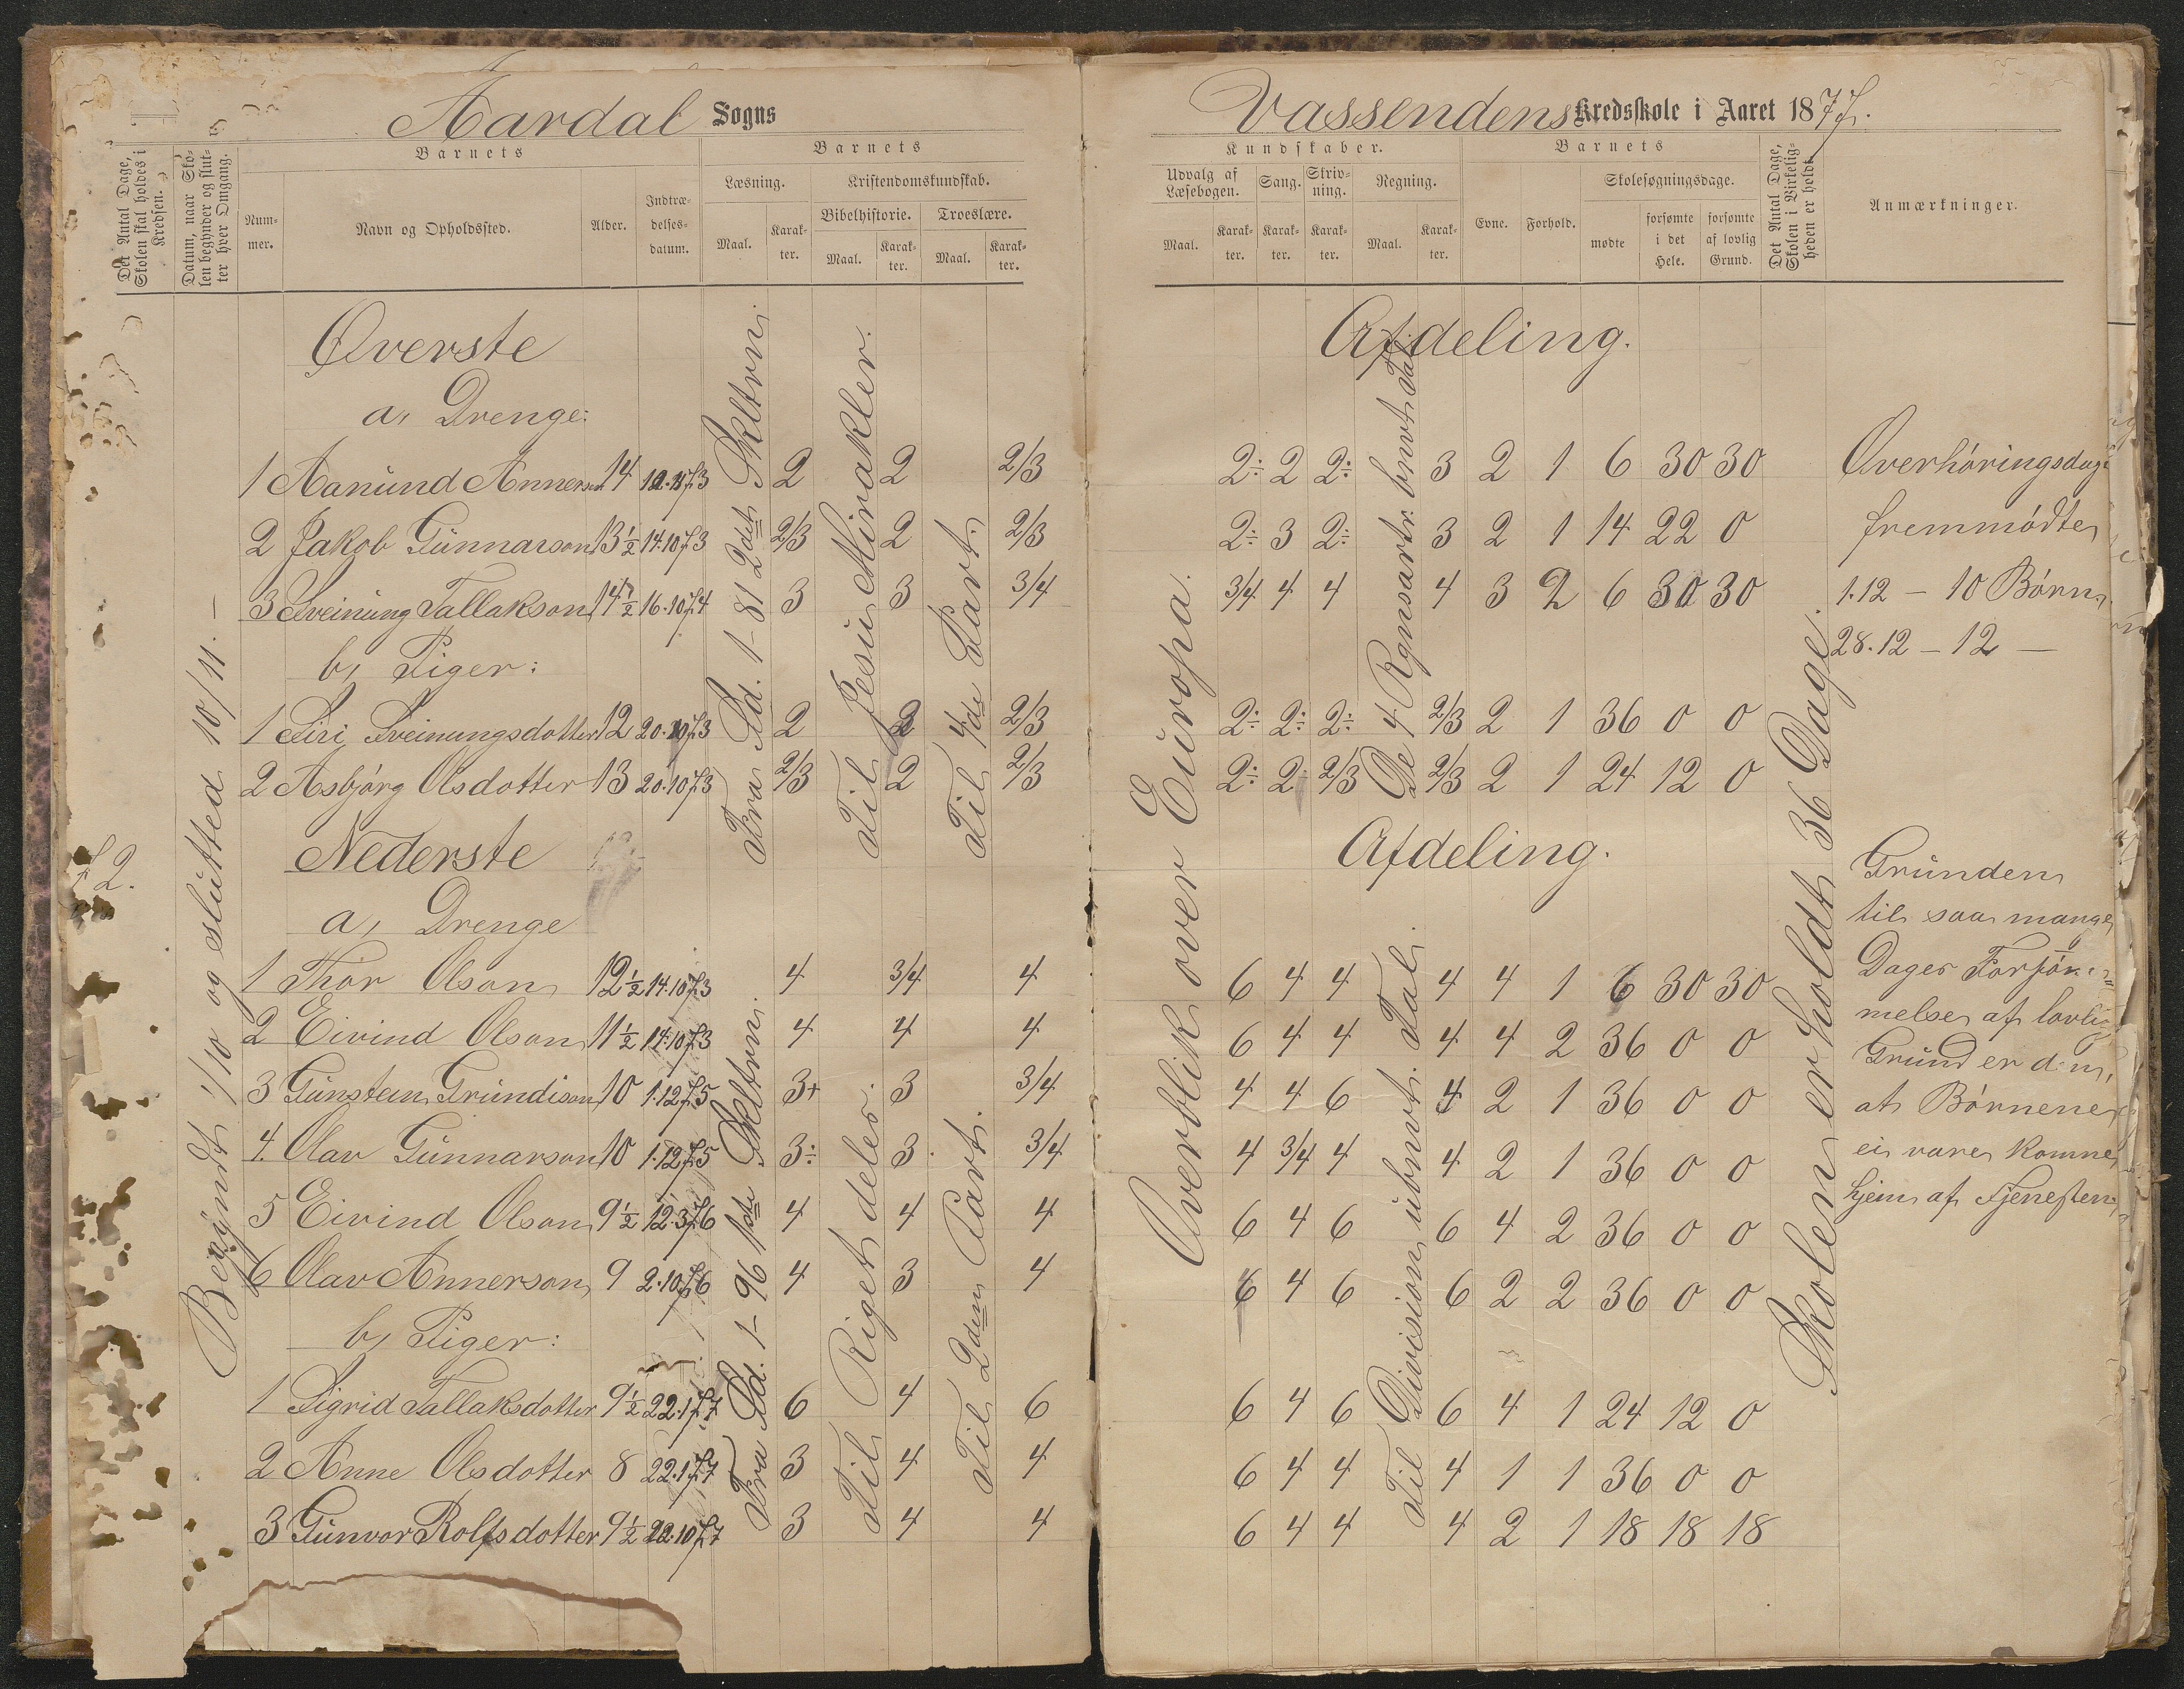 Aardal Sogns
Vassendens Kredsskole i Aaret 1877.
Det Antal Dage, Skolen skal holdes i Kredsen.
Datum, naar Skolen begynder og slutter hver Omgang.
Barnets
Nummer.
Navn og Opholdssted.
Alder.
Indtrædelsesdatum.
Barnets
Læsning.
Kristendomskundskab.
Maal.
Karakter.
Bibelhistorie.
Troeslære.
Maal.
Karakter.
Maal.
Karakter.
Kundskaber.
Udvalg af Læsebogen.
Sang.
Skrivning.
Regning.
Maal.
Karakter.
Karakter.
Karakter.
Maal.
Karakter.
Barnets
Evne.
Forhold.
Skolesøgningsdage.
mødte
forsømte i det Hele.
forsømte af lovlig Grund.
Det Antal Dage, Skolen i Virkeligheden er holdt.
Anmærkninger.
Begyndt 1/10 og slutted 10/11. —
Øverste Afdeling.
a, Drenge:
1 Aanund Annerson 14 73 2 2 2/3 2÷ 2 2÷ 3 2 1 6 30 30
2 Jakob Gunnarson 13½ 14.10.73 2/3 2 2/3 2÷ 3 2÷ 3 2 1 14 22 0
3 Sveinung Tallakson 14½ 16.10.74 3 3 3/4 3/4 4 4 4 3 2 6 30 30
b, Piger:
1 Siri Sveinungsdotter 12 20.10.73 2 2 2/3 2÷ 2÷ 2÷ 2/3 2 1 36 0 0
2 Asbjørg Olsdotter 13 20.10.73 2/3 2 2/3 2÷ 2 2/3 2/3 2 1 24 12 0
Fra Sd. 1-81 2det Skltrn.
Til Jesu Mirakler.
Til 4de Part.
De 4 Rgnsartr. bnvt. Tal
Overblik over Europa.
Skolen er holdt 36 Dage.
Nederste Afdeling.
a, Drenge
1 Thor Olson 12½ 14.10.73 4 3/4 4 6 4 4 4 4 1 6 30 30
2 Eivind Olson 11½ 14.10.73 4 4 4 6 4 4 4 4 2 36 0 0
3 Gunstein Grundison 10 1.12.75 3+ 3 3/4 4 4 6 4 2 1 36 0 0
4 Olav Gunnarson 10 1.12.75 3÷ 3 3/4 4 3/4 4 4 2 1 36 0 0
5 Eivind Olson 9½ 12.3.76 4 4 4 6 4 6 6 4 2 36 0 0
6 Olav Annerson 9 2.10.76 4 3 4 6 4 6 6 2 2 36 0 0
b, Piger:
1 Sigrid Tallaksdotter 9½ 22.1.77 6 4 6 6 4 6 6 4 1 24 12 0
2 Anne Olsdotter 8 22.1.77 3 4 4 6 4 4 4 1 1 36 0 0
3 Gunvor Rolfsdotter 9½ 22.10.77 3 4 4 6 4 4 4 2 1 18 18 18
Fra Sd. 1-96 1ste Skltrn.
Til Riget deles.
Til 2den Part.
Til Division ubnvt. Tal.
Overhøringsdage
fremmødte
1.12 — 10 Børn
28.12 — 12 —
Grunden
til saa mange
Dages Forsøm-
melse af lovlig
Grund er den,
at Børnene
ei vare komne
hjem af Tjenesten